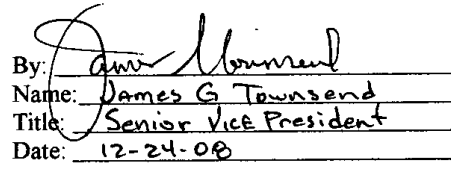 By: James Townsend
Name: James G Townsend
Title: Senior Vice President
Date: 12-24-08